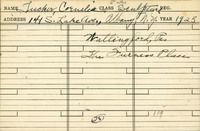 NAME Tucker Cornelia CLASS Sculpture REG.
ADDRESS 141 S. Lake Ave., Albany N.Y. YEAR 1925
Wallingford, Pa
The Furness Place